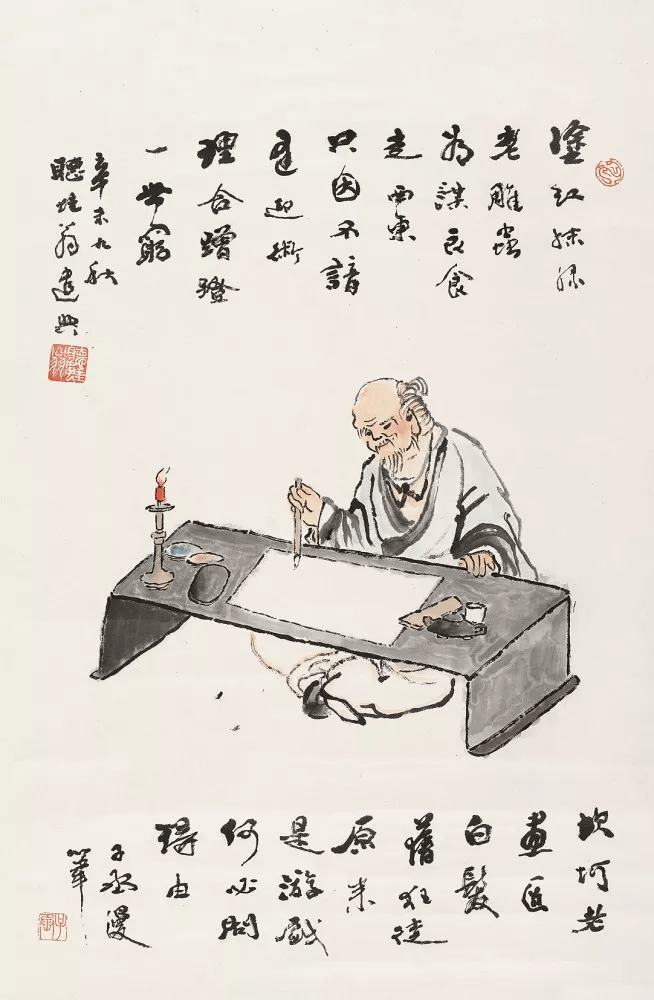 塗紅抹綠
老雕蟲
為謀衣食
走西東
只因不諳
逢迎術
理合蹭蹬
一世窮
辛未九秋
聽蛙翁遣興
坎坷老
畫匠
白髮
舊狂徒
原來
是游戲
何必問
理由
子丞漫
筆